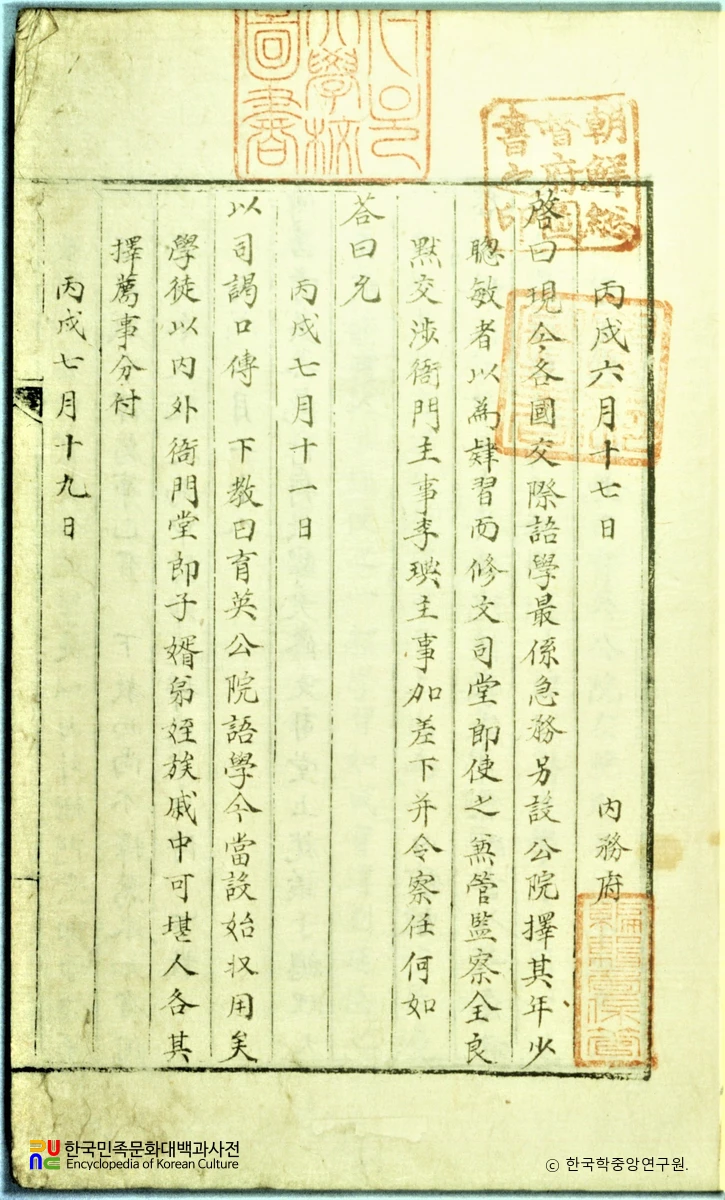 丙戌六月十七日 內務府
啓曰現今各國交際語學最係急務另設公院擇其年少
聰敏者以為肄習而修文司堂郎使之兼管監察全良
默交涉衙門主事李琠主事加差下并令察任何如
答曰允
丙戌七月十一日
以司謁口傳 下教曰育英公院語學今當設始收用矣
學徒以內外衙門堂郎子婿弟姪族戚中可堪人各其
擇薦事分付
丙戌七月十九日
朝鮮総
督府圖
書之印
大學校
圖書
한국민족문화대백과사전
Encyclopedia of Korean Culture
© 한국학중앙연구원.